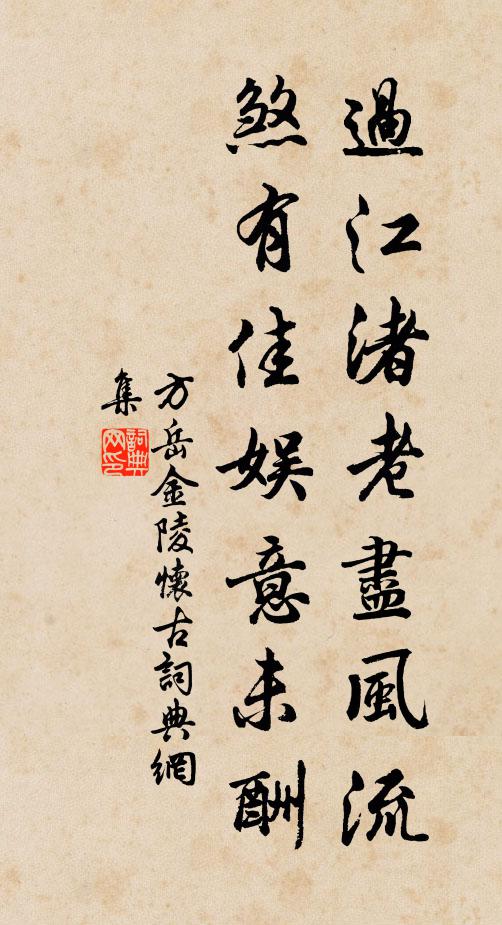 過江渚老盡風流
煞有佳娛意未酬
方岳金陵懷古詞典網
集
詞典
网印